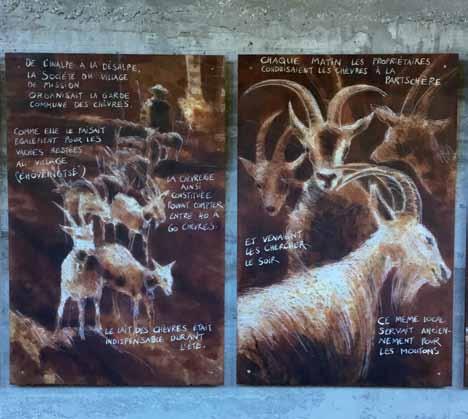 DE L'INALPE À LA DÉSALPE,
LA SOCIÉTÉ DU VILLAGE
DE MISSION
ORGANISAIT LA GARDE
COMMUNE DES CHÈVRES.
COMME ELLE LE FAISAIT
ÉGALEMENT POUR LES
VACHES RESTÉES
AU VILLAGE
LA CHEVRERIE
AINSI
CONSTITUÉE
POUVAIT COMPTER
ENTRE 40 À
60 CHÈVRES.
LE LAIT DES CHÈVRES ÉTAIT
INDISPENSABLE DURANT
L'ÉTÉ.
CHAQUE MATIN LES PROPRIÉTAIRES
CONDUISAIENT LES CHÈVRES À LA
PARTSCHÈRE
ET VENAIENT
LES CHERCHER
LE SOIR
CE MÊME LOCAL
SERVAIT ANCIEN-
NEMENT POUR
LES MOUTONS